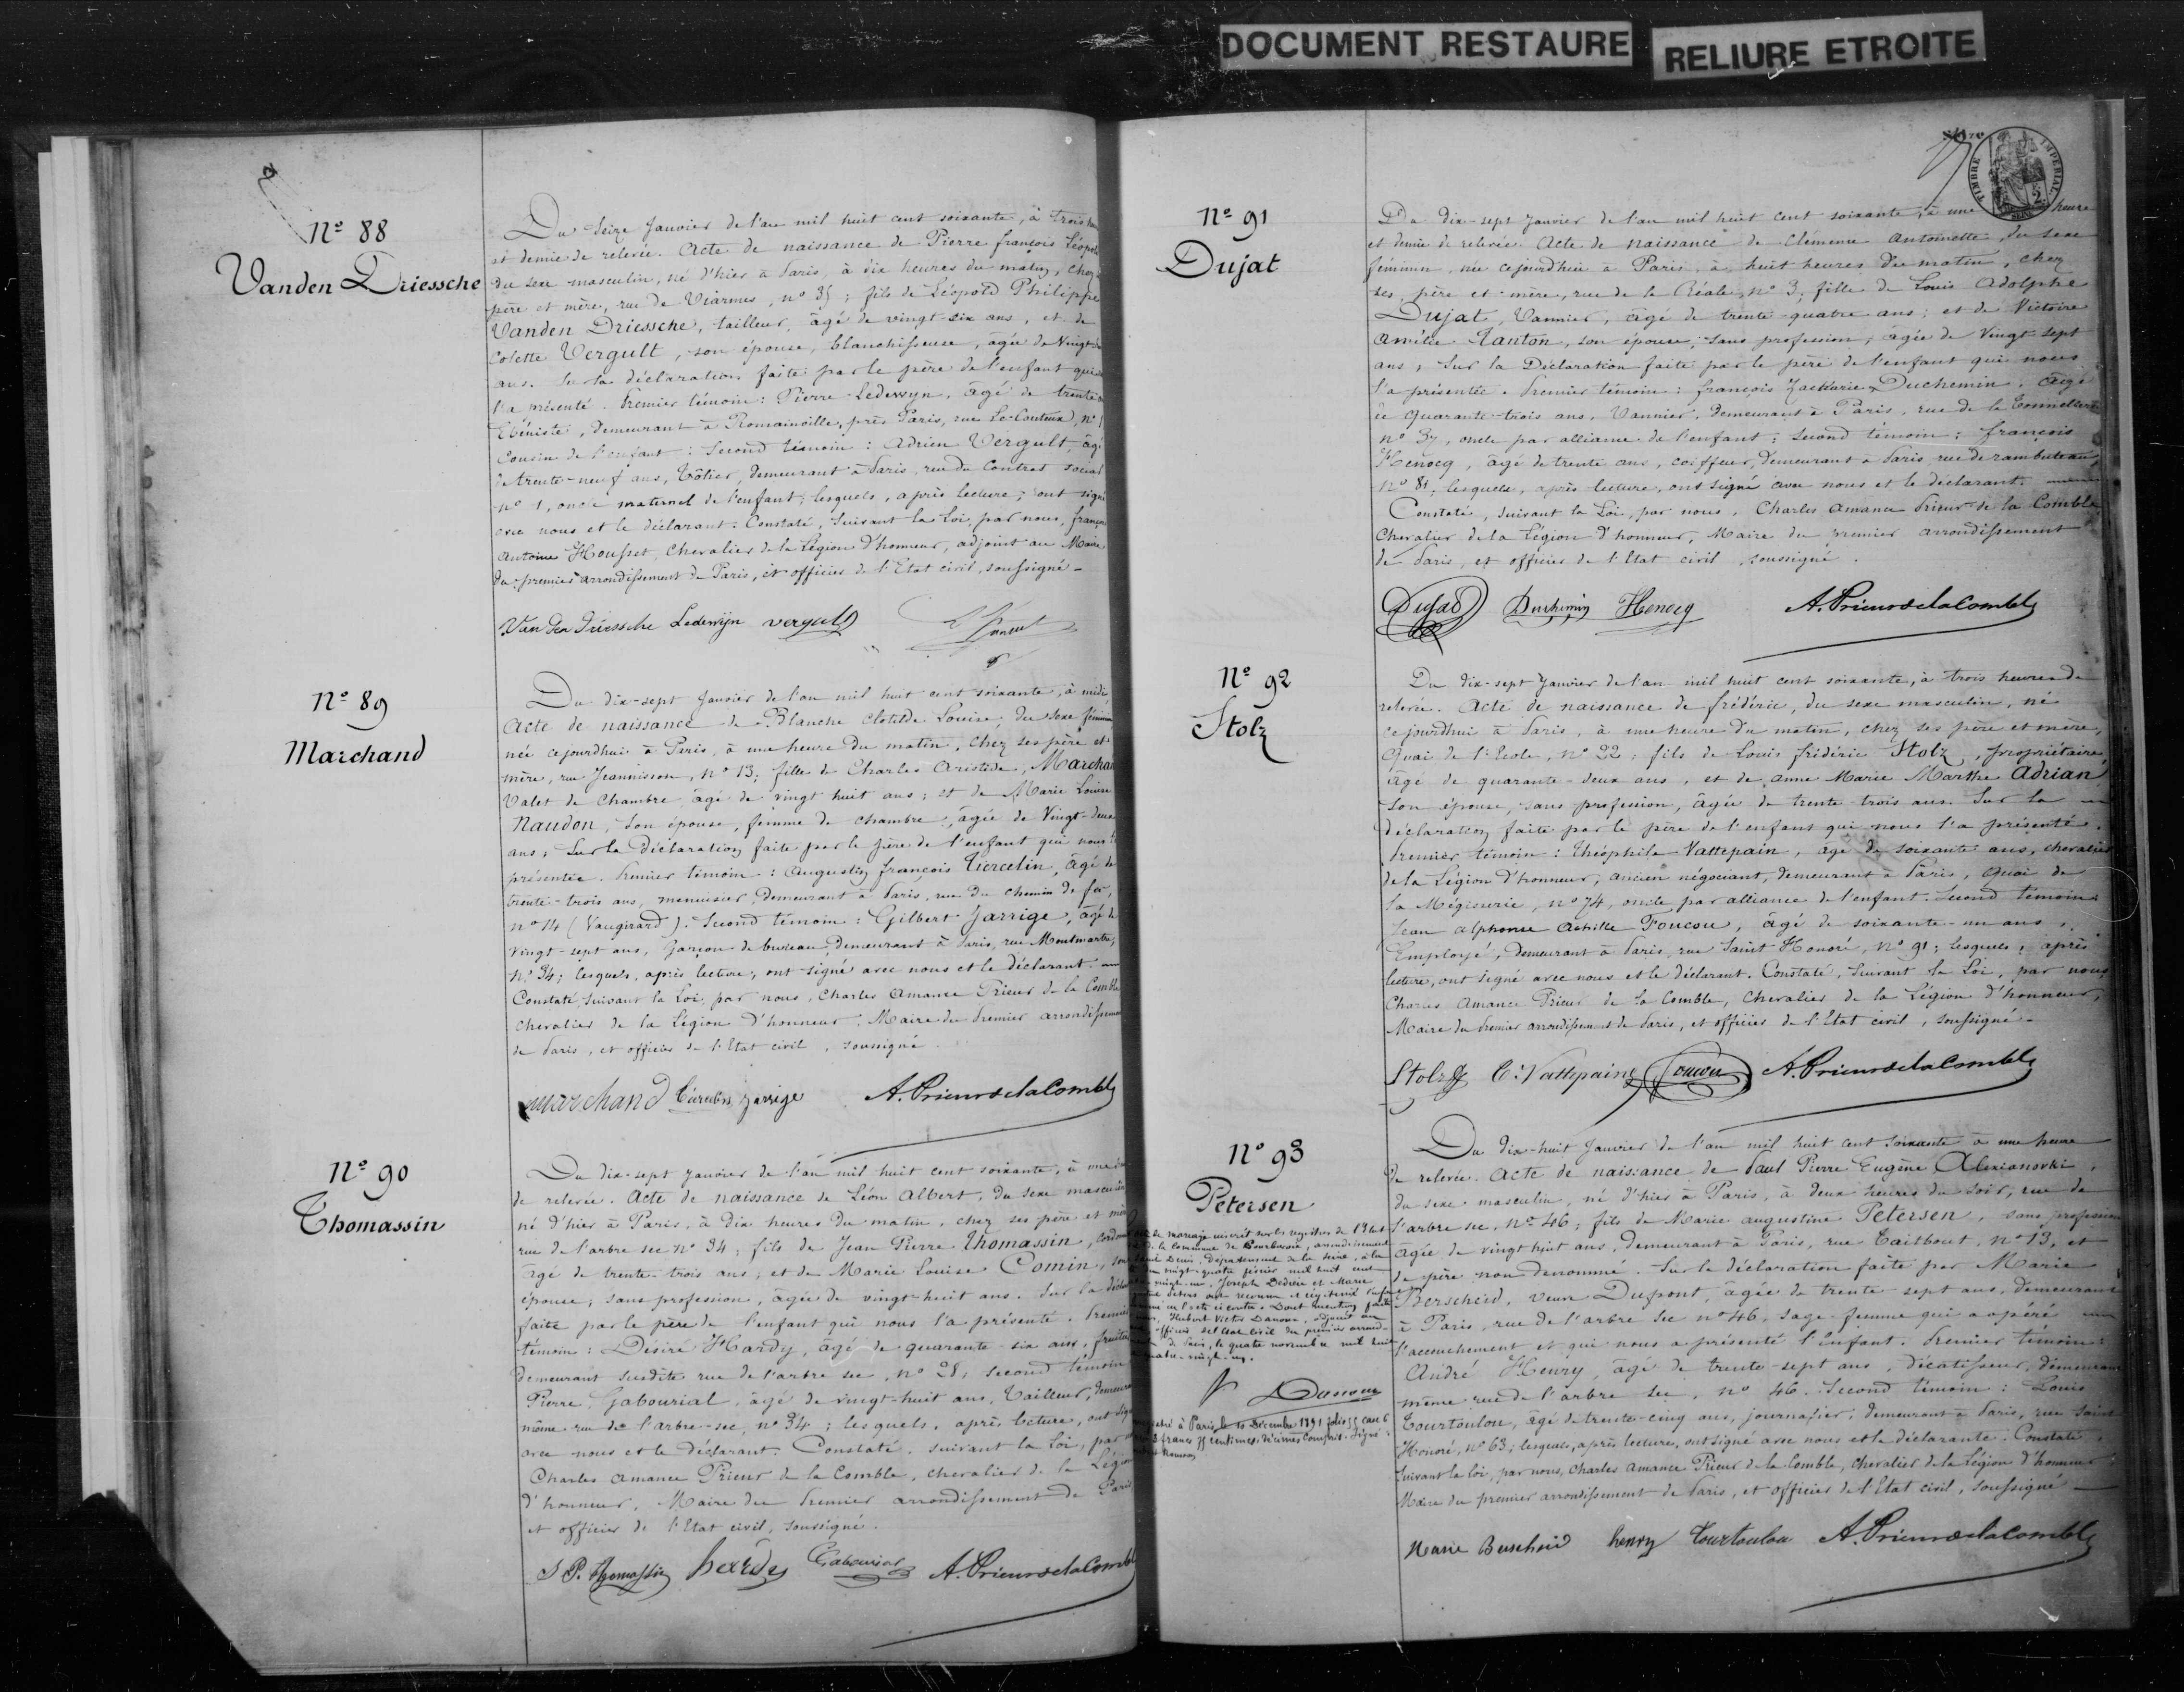 DOCUMENT RESTAURE
RELIURE ETROITE
Nº 88
Vanden Driessche
Du seize Janvier de l'an mil huit cent soixante, à trois
et demie de relevée. Acte de naissance de Pierre françois Léopold
du sexe masculin, né d'hier à Paris, à dix heures du matin, chez
père et mère, rue de Viarmes, nº 35; fils de Léopold Philippe
Vanden Driessche, tailleur, âgé de vingt-six ans, et de
Colette Vergult, son épouse, blanchisseuse, âgée de Vingt-
ans. Sur la déclaration faite par le père de l'enfant qui
l'a présenté. Premier témoin: Pierre Ledewyn, âgé de trente
Ebéniste, demeurant à Romainville, près Paris, rue Le Couteux, nº
Cousin de l'enfant: Second témoin: Adrien Vergult, âgé
de trente-neuf ans, Tôlier, demeurant à Paris, rue du Contrat social
nº 1, oncle maternel de l'enfant; lesquels, après lecture, ont signé
avec nous et le déclarant. Constaté, Suivant la Loi, par nous, françois
Antoine Housset, Chevalier de la Légion d'honneur, adjoint au Maire
du premier arrondissement de Paris, et officier de l'Etat civil, soussigné-
Van den Driessche Ledewijn vergult
Nº 89
Marchand
Du dix-sept Janvier de l'an mil huit cent soixante, à midi,
Acte de naissance de Blanche Clotilde Louise, du sexe féminin
née cejourdhui à Paris, à une heure du matin, chez ses père et
mère, rue Jeannisson, nº 13; fille de Charles Aristide, Marchand
Valet de Chambre, âgé de vingt huit ans; et de Marie Louise
Naudon, son épouse, femme de chambre, âgée de Vingt-deux
ans; Sur la Déclaration faite par le père de l'enfant qui nous l'a
présentée. Premier témoin: Augustin françois Tiercelin, âgé de
trente-trois ans, menuisier, demeurant à Paris, rue du Chemin de fer,
nº 14 (Vaugirard). Second témoin: Gilbert Jarrige, âgé de
vingt-sept ans, Garçon de bureau, demeurant à Paris, rue Montmartre,
nº 34; lesquels, après lecture, ont signé avec nous et le déclarant.
Constaté suivant la Loi, par nous, Charles Amance Prieur de la Comble
chevalier de la Légion d'honneur, Maire du Premier arrondissement
de Paris, et officier de l'Etat civil, soussigné.
marchand Tiercelin jarrige A. Prieur de la Comble
Nº 90
Thomassin
Du dix-sept Janvier de l'an mil huit cent soixante, à une
de relevée. Acte de naissance de Léon Albert, du sexe masculin
né d'hier à Paris, à dix heures du matin, chez ses père et mère
rue de l'arbre sec nº 34; fils de Jean Pierre Thomassin,
âgé de trente-trois ans; et de Marie Louise Comin, son
épouse, sans profession, âgée de vingt-huit ans. Sur la
faite par le père de l'enfant qui nous l'a présenté. Premier
témoin: Désiré Hardy, âgé de quarante-six ans,
demeurant susdite rue de l'arbre sec, nº 25; second témoin
Pierre Gabourial, âgé de vingt-huit ans, Tailleur,
même rue de l'arbre-sec, nº 34; lesquels, après lecture, ont
avec nous et le déclarant. Constaté, suivant la Loi, par
Charles Amance Prieur de la Comble, chevalier de la Légion
d'honneur, Maire du Premier arrondissement de Paris
et officier de l'Etat civil, soussigné.
J P. Thomassin hardy Gabourial A. Prieur de la Comble
TIMBRE IMPERIAL
SEINE
Nº 91
Dujat
Du dix-sept Janvier de l'an mil huit cent soixante, à une heure
et demie de relevée. Acte de naissance de Clémence Antoinette, du sexe
féminin, née cejourdhui à Paris, à huit heures du matin, chez
ses père et mère, rue de la Réale, nº 3; fille de Louis Adolphe
Dujat, Vannier, âgé de trente-quatre ans; et de Victoire
Amélie Tanton, son épouse, sans profession, âgée de Vingt sept
ans; Sur la Déclaration faite par le père de l'enfant qui nous
l'a présentée. Premier témoin: François Zacharie Duchemin, âgé
de quarante-trois ans, Vannier, demeurant à Paris, rue de la Tonnellerie
nº 37, oncle par alliance de l'enfant: Second témoin: françois
Henocq, âgé de trente ans, coiffeur, demeurant à Paris, rue de rambuteau,
nº 81, lesquels, après lecture, ont signé avec nous et le déclarant.
Constaté, suivant la Loi, par nous, Charles Amance Prieur de la Comble
Chevalier de la Légion d'honneur, Maire du premier arrondissement
de Paris, et officier de l'Etat civil, soussigné.
Dujat Duchemin Henocq A. Prieur de la Comble
Nº 92
Stolz
Du dix-sept Janvier de l'an mil huit cent soixante, à trois heures de
relevée. Acte de naissance de frédéric, du sexe masculin, né
cejourdhui à Paris, à une heure du matin, chez ses père et mère,
Quai de l'Ecole, Nº 22; fils de Louis frédéric Stolz, propriétaire,
âgé de quarante-deux ans, et de Anne Marie Marthe Adrian,
son épouse, sans profession, âgée de trente-trois ans. Sur la
déclaration faite par le père de l'enfant qui nous l'a présenté.
Premier témoin: Théophile Vattepain, âgé de soixante ans, chevalier
de la Légion d'honneur, ancien négociant, demeurant à Paris, Quai de
la Mégisserie, nº 74, oncle par alliance de l'enfant. Second témoin
Jean Alphonse Achille Foucou, âgé de soixante-un ans,
Employé, demeurant à Paris, rue Saint Honoré, Nº 91; lesquels, après
lecture, ont signé avec nous et le déclarant. Constaté, Suivant la Loi, par nous
Charles Amance Prieur de la Comble, Chevalier de la Légion d'honneur,
Maire du Premier arrondissement de Paris, et officier de l'Etat civil, soussigné-
Stolz T. Vattepain Foucou A. Prieur de la Comble
Nº 93
Petersen
Du dix-huit Janvier de l'an mil huit cent soixante à une heure
de relevée. Acte de naissance de Paul Pierre Eugène Alexianovki,
du sexe masculin, né d'hier à Paris, à deux heures du soir, rue de
l'arbre sec, Nº 46; fils de Marie Augustine Petersen, sans profession
âgée de vingt huit ans, demeurant à Paris, rue Taitbout, nº 13, et
de père non dénommé. Sur la déclaration faite par Marie
Berscheid, veuve Dupont, âgée de trente-sept ans, demeurant
à Paris, rue de l'arbre sec nº 46, sage-femme qui a opéré
l'accouchement et qui nous a présenté l'enfant. Premier témoin:
André Henry, âgé de trente-sept ans, décatisseur, demeurant
même rue de l'arbre sec, nº 46. Second témoin: Louis
Tourtoulou, âgé de trente-cinq ans, journalier, demeurant à Paris, rue Saint
Honoré, nº 63; lesquels, après lecture, ont signé avec nous et la déclarante. Constaté
suivant la loi, par nous, Charles Amance Prieur de la Comble, Chevalier de la Légion d'honneur
Maire du premier arrondissement de Paris, et officier de l'Etat civil, soussigné
Marie Berscheid henry Tourtoulou A. Prieur de la Comble
de mariage inscrit sur les registres de l'Etat
de la commune de Courbevoie, arrondissement
Saint Denis, département de la Seine, à la
vingt-quatre février mil huit cent
vingt-un, Joseph Dédrée et Marie
Dont mention faite
Hubert Victor Danoux, adjoint au
officier de l'Etat civil du premier
de Paris, le quatre novembre mil huit
quatre-vingt-
à Paris le 10 Décembre 1891 folio 55 case 6
3 francs 75 centimes, décimes compris. Signé: